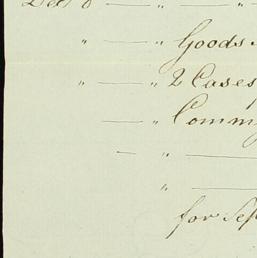 Dec 8 — " — "
" — " Goods
" — " 2 Cases
— " Comm
— " —
" —
for Sep